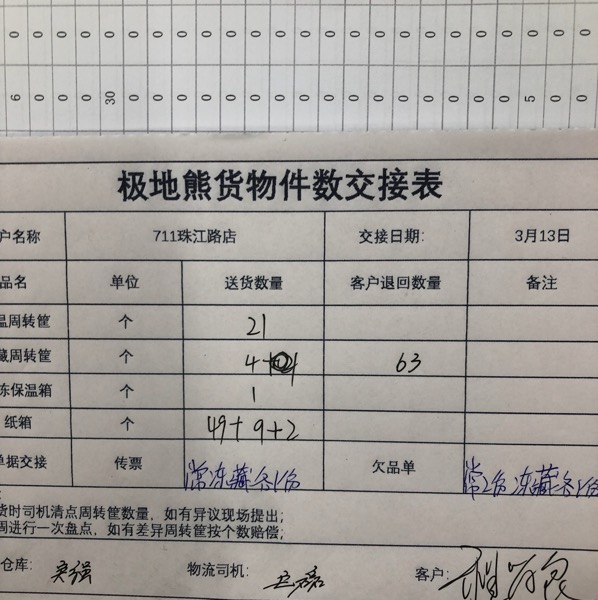 0 0 0 0 0 0 0 0 0 0 0 0 0 0 0 0 0 0 0 0 0 0 0 0
6 0 0 0 30 0 0 0 0 0 0 0 0 0 0 0 0 0 0 0 0 5 0 0
极地熊货物件数交接表
户名称 711珠江路店 交接日期: 3月13日
品名 单位 送货数量 客户退回数量 备注
温周转筐 个 21
藏周转筐 个 4+ 63
冻保温箱 个 1
纸箱 个 49+9+2
单据交接 传票 常冻藏各1份 欠品单 常2份冻藏各1份
货时司机清点周转筐数量，如有异议现场提出；
周进行一次盘点，如有差异周转筐按个数赔偿；
仓库: 物流司机: 客户: